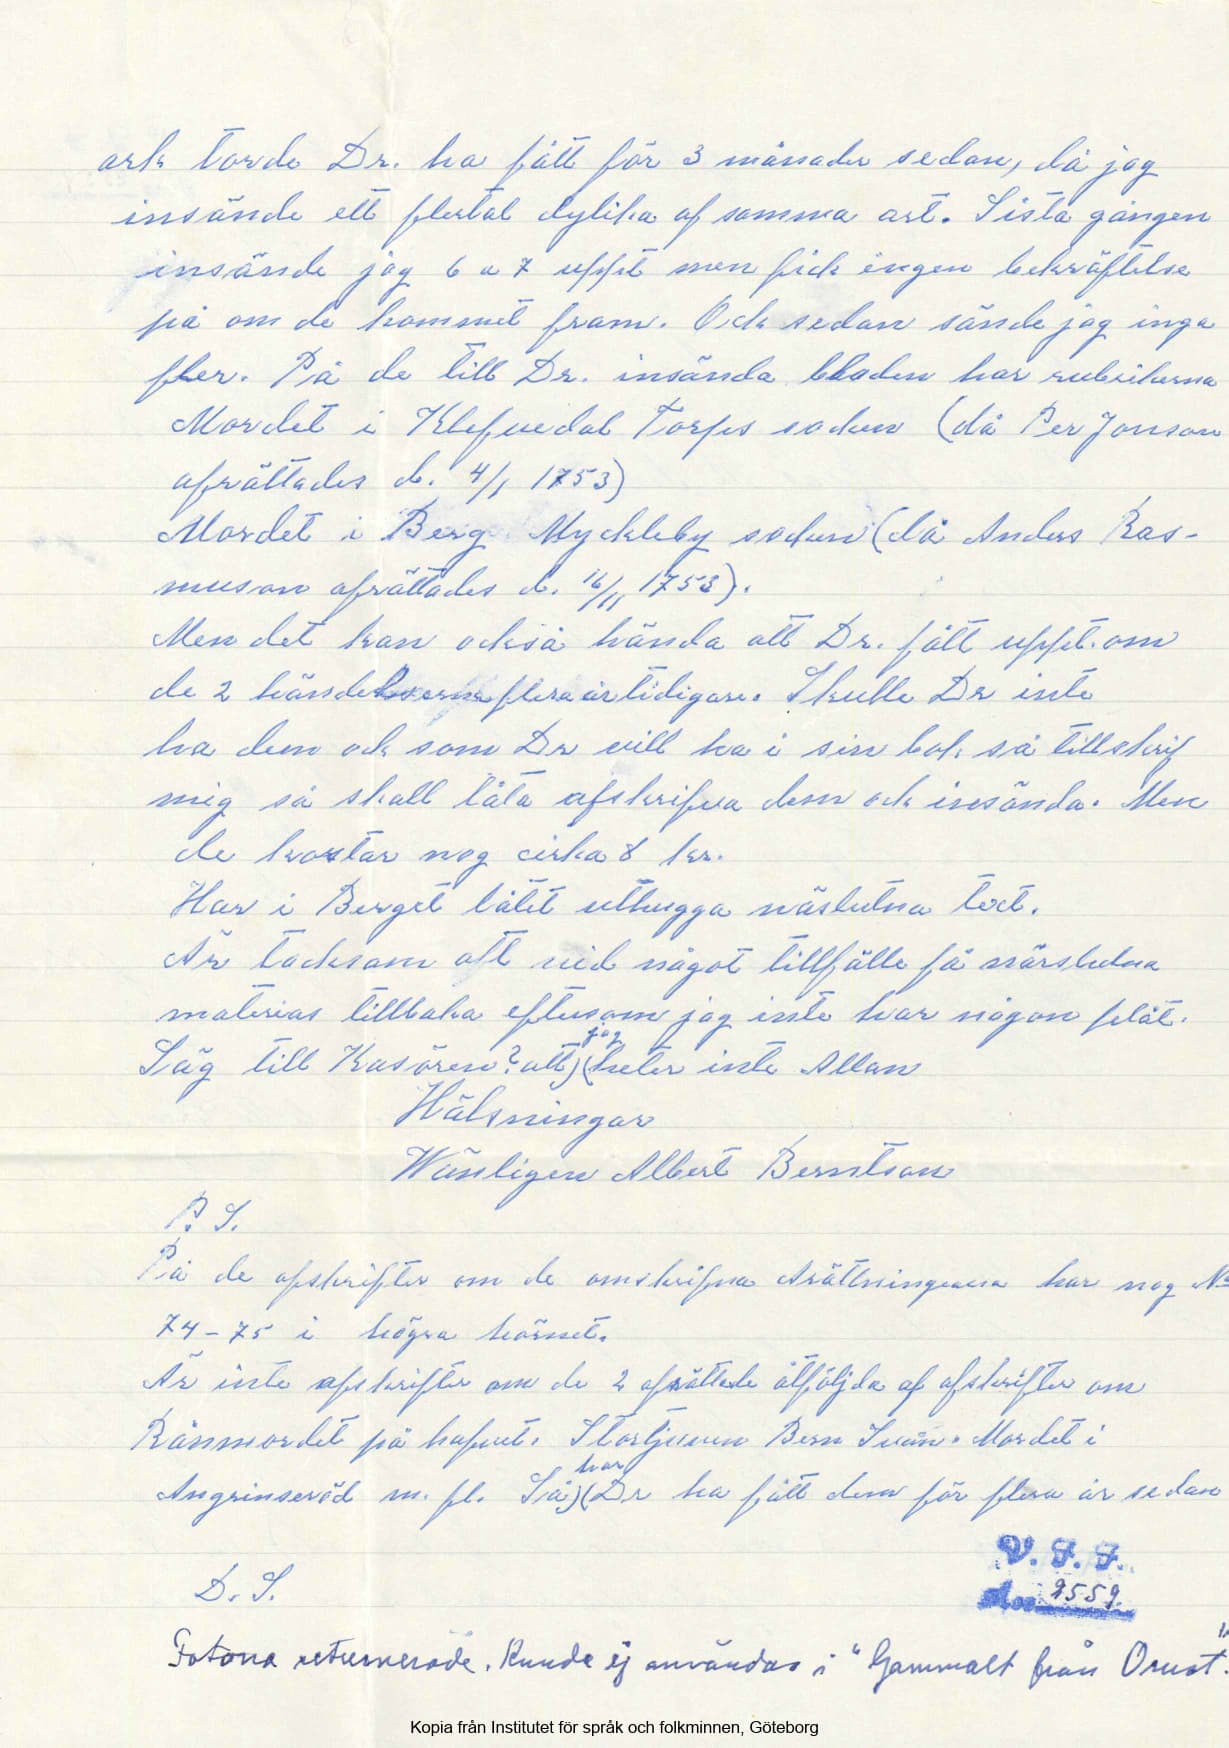 ark torde Dr. ha fått för 3 månader sedan, då jag
insände ett flertal dylika af samma art. Sista gången
insände jag 6 a 7 uppt men fick ingen bekräftelse
på om de kommet fram. Och sedan sände jag inga
fler. På de till Dr. insända bladen har rubrikerna
Mordet i Klefvedal Torps socken (då Per Jonson
afrättades d. 4/1 1753)
Mordet i Berg Myckleby socken (då Anders Ras-
muson afrättades d. 16/11 1753).
Men det kan också hända att Dr. fått uppt. om
de 2 händelserna flera år tidigare. Skulle Dr inte
ha dem och som Dr vill ha i sin bok så tillskrif
mig så skall låta afskrifva dem och insända. Men
de kostar nog cirka 8 kr.
Har i Berget låtit uthugga näslutna text.
Är tacksam att vid något tillfälle få närslutna
materias tillbaka eftersom jag inte har någon plåt.
Säg till Kasören? att) jag (heter inte Allan
Hälsningar
Wänligen Albert Berntson
P. S.
På de afskrifter om de omskrifna Arättningarna har nog No
74-75 i högra hörnet.
Är inte afskrifter om de 2 afrättade åtföljda af afskrifter om
Rånmordet på hafvet. Stortjuven Bern Svän. Mordet i
Angrinseröd m. fl. Så) har (Dr ha fått dem för flera år sedan
D. S.
V. F. F.
Acc 2559.
Fotona returnerade. Kunde ej användas i "Gammalt från Orust".
Kopia från Institutet för språk och folkminnen, Göteborg